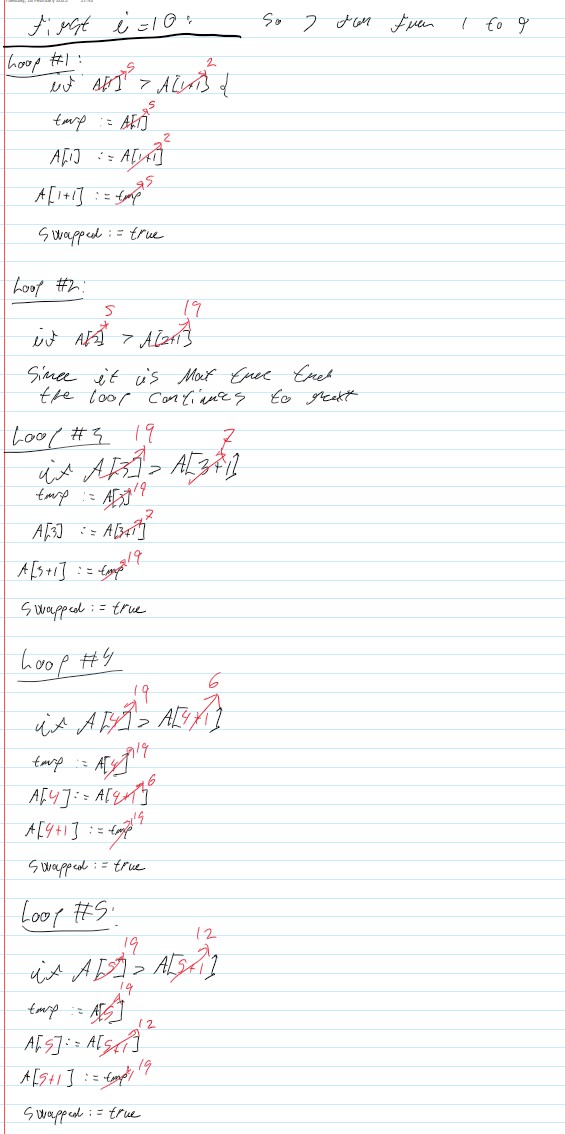 First i=10: So J ran from 1 to 9
Loop #1:
if A[1] 5 > A[1+1] 2 {
tmp := A[1] 5
A[1] := A[1+1] 2
A[1+1] := tmp 5
Swapped := true
Loop #2:
if A[2] 5 > A[2+1] 19
Since it is Not true then
the loop continues to next
Loop #3
if A[3] 19 > A[3+1] 7
tmp := A[3] 19
A[3] := A[3+1] 7
A[3+1] := tmp 19
Swapped := true
Loop #4
if A[4] 19 > A[4+1] 6
tmp := A[4] 19
A[4] := A[4+1] 6
A[4+1] := tmp 19
Swapped := true
Loop #5:
if A[5] 19 > A[5+1] 12
tmp := A[5] 19
A[5] := A[5+1] 12
A[5+1] := tmp 19
Swapped := true